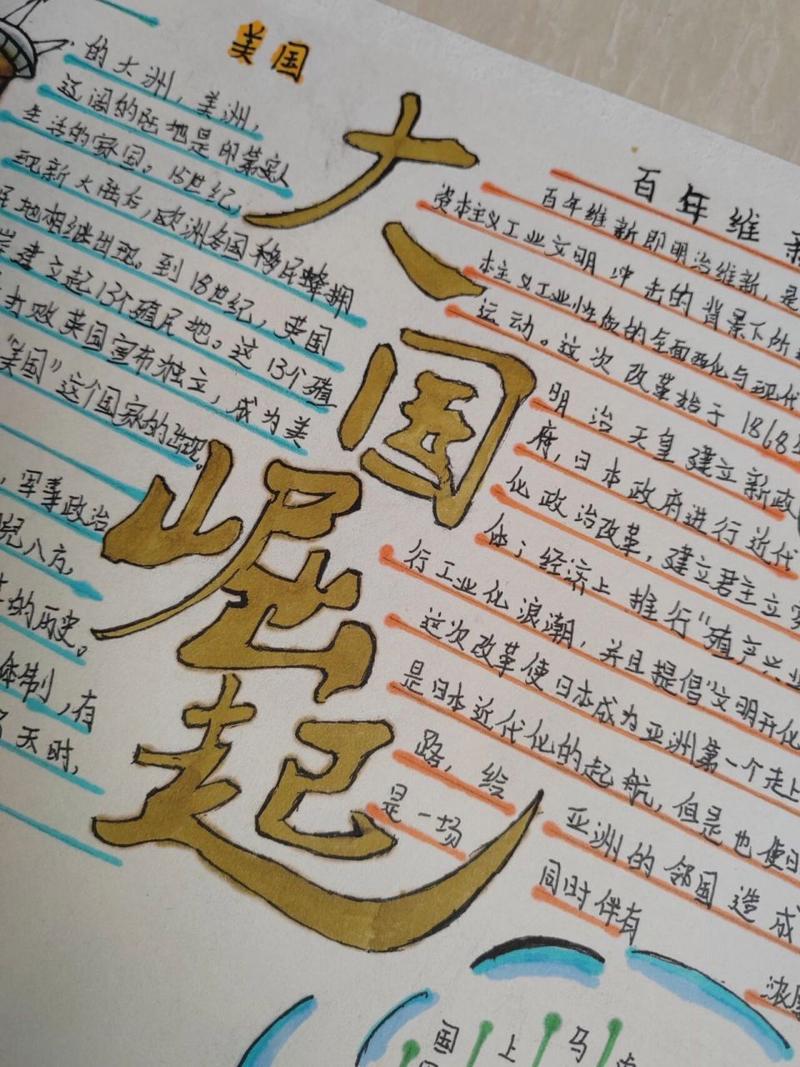 美国
的大洲，美洲，
辽阔的陆地是印第安人
生活的家园。15世纪，
现新大陆后，欧洲各国移民蜂拥
地相继出现。到18世纪，英国
建立起13个殖民地。这13个殖
打败英国宣布独立，成为美
“美国”这个国家的出现。
，军事政治
八方，
的历史。
体制，有
天时，
大国崛起
百年维
百年维新即明治维新，是
资本主义工业文明冲击的背景下所
本主义工业性质的全面西化与现代
运动。这次改革始于1868
明治天皇建立新政
府，日本政府进行近代
化政治改革，建立君主立
体；经济上推行“殖产兴业
行工业化浪潮，并且提倡“文明开化
这次改革使日本成为亚洲第一个走上
是日本近代化的起航，但是也使
路，给亚洲的邻国造成
是一场同时伴有
国
上
马